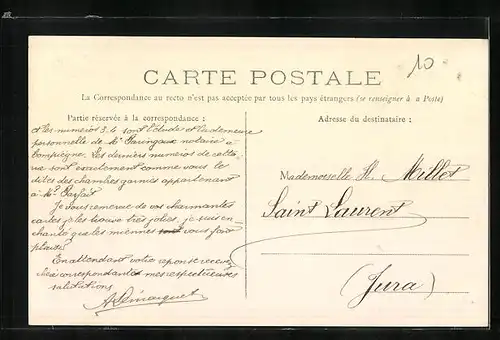 10
CARTE POSTALE
La Correspondance au recto n'est pas acceptée par tous les pays étrangers (se renseigner à a Poste)
Partie réservée à la correspondance :
et les numéros 3.4 sont l'étude et la demeure
personnelle de Mr notaire à
Compiègne. Les derniers numéros de cette
rue sont exactement comme vous le
dites des chambres garnies appartenant
à Mr Parfait
Je vous remercie de vos charmantes
cartes je les trouve très jolies, je suis en
chanté que les miennes vous font
plaisir.
En attendant votre réponse recevez
chère correspondante mes respectueuses
salutations
Adresse du destinataire :
Mademoiselle H. Millet
Saint Laurent
(Jura)